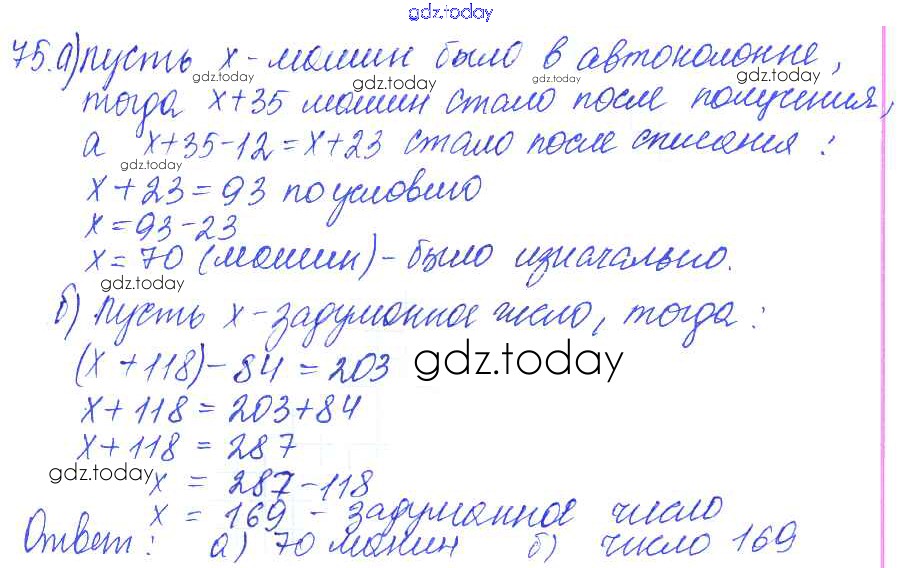 gdz.today
75. а) Пусть x - машин было в автоколонне,
gdz.today gdz.today gdz.today gdz.today
тогда x+35 машин стало после получения,
а x+35-12=x+23 стало после списания:
gdz.today
x+23=93 по условию
x=93-23
x=70 (машин) - было изначально.
gdz.today
б) Пусть x - задуманное число, тогда:
(x+118)-84=203 gdz.today
x+118=203+84
x+118=287
gdz.today
x = 287-118
x = 169 - задуманное число
Ответ: а) 70 машин б) число 169